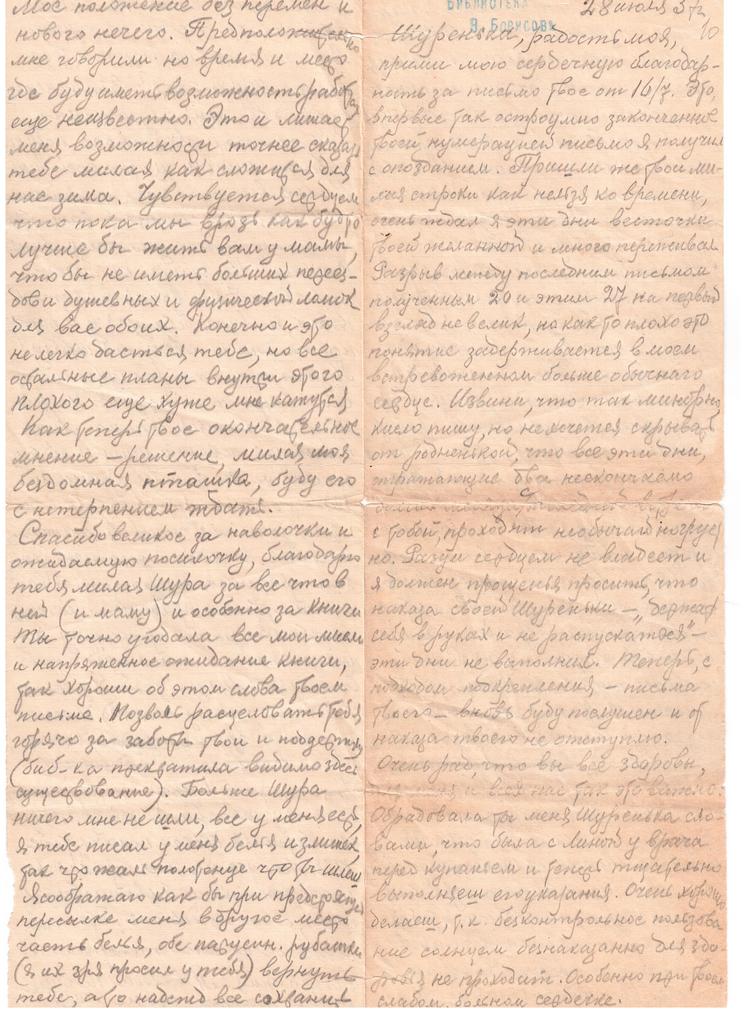 Мое положение без перемен и
нового нечего. Предположительно
мне говорили но время и место
где буду иметь возможность работать
еще неизвестно. Это и лишает
меня возможности точнее сказать
тебе милая как сложится для
нас зима. Чувствуется сердцем
что пока мы врозь как будто
лучше бы жить вам у мамы,
что бы не иметь больших переез-
дов и душевных и физической ломок
для вас обоих. Конечно и это
нелегко дасться тебе, но все
остальные планы внутри этого
плохого еще хуже мне кажутся
Как теперь твое окончательное
мнение – решение, милая моя
бездомная пташка, буду его
с нетерпением ждать.
Спасибо великое за наволочки и
ожидаемую посылочку, благодарю
тебя милая Шура за все что в
ней (и маму) и особенно за книги
Ты точно угодала все мои мысли
и напряженное ожидание книги,
так хороши об этом слова в твоем
письме. Позволь расцеловать тебя
горячо за заботы твои и поддержку
(биб-ка прекратила видимо здесь
существование). Больше Шура
ничего мне не шли, все у меня есть,
я тебе писал у меня белья излишек,
так что жаль полотенце что ты шлешь
Я соображаю как бы при предстоящей
пересылке меня в другое место
часть белья, обе парусин. рубашки
(я их зря просил у тебя) вернуть
тебе, а то надежд все сохранить
БИБЛИОТЕКА
В. БОРИСОВ
28 июля 37г.
10
Шуренька, радость моя,
прими мою сердечную благодар-
ность за письмо твое от 16/7. Это,
впервые так остроумно законченное
твоей нумерацией письмо я получил
с опозданием. Пришли же твои ми-
лые строки как нельзя ко времени,
очень ждал я эти дни весточки
твоей желанной и много переживал
Разрыв между последним письмом
полученным 20 и этим 27 на первый
взгляд не велик, но как то плохо это
понятие задерживается в моем
встревоженном больше обычного
сердце. Извини, что так минорно
кисло пишу, но не хочется скрывать
от родненькой, что все эти дни,
отражающие два нескончаемо
с тобой, проходят необычай но груст
но. Разум сердцем не владеет и
я должен прощенья просить, что
наказа своей Шуреньки – „держать
себя в руках и не распускаться" –
эти дни не выполнил. Теперь, с
подходом подкрепления – письма
твоего – вновь буду послушен и от
наказа твоего не отступлю.
Очень рад, что вы все здоровы,
меня и всех нас так это важно.
Обрадовала ты меня Шуренька сло-
вами, что была с Линой у врача
перед купаньем и теперь тщательно
выполняешь его указания. Очень хорошо
делаеш, т.к. безконтрольное пользова-
ние солнцем безнаказанно для здо-
ровья не проходит. Особенно при твоем
слабом, больном сердечке.